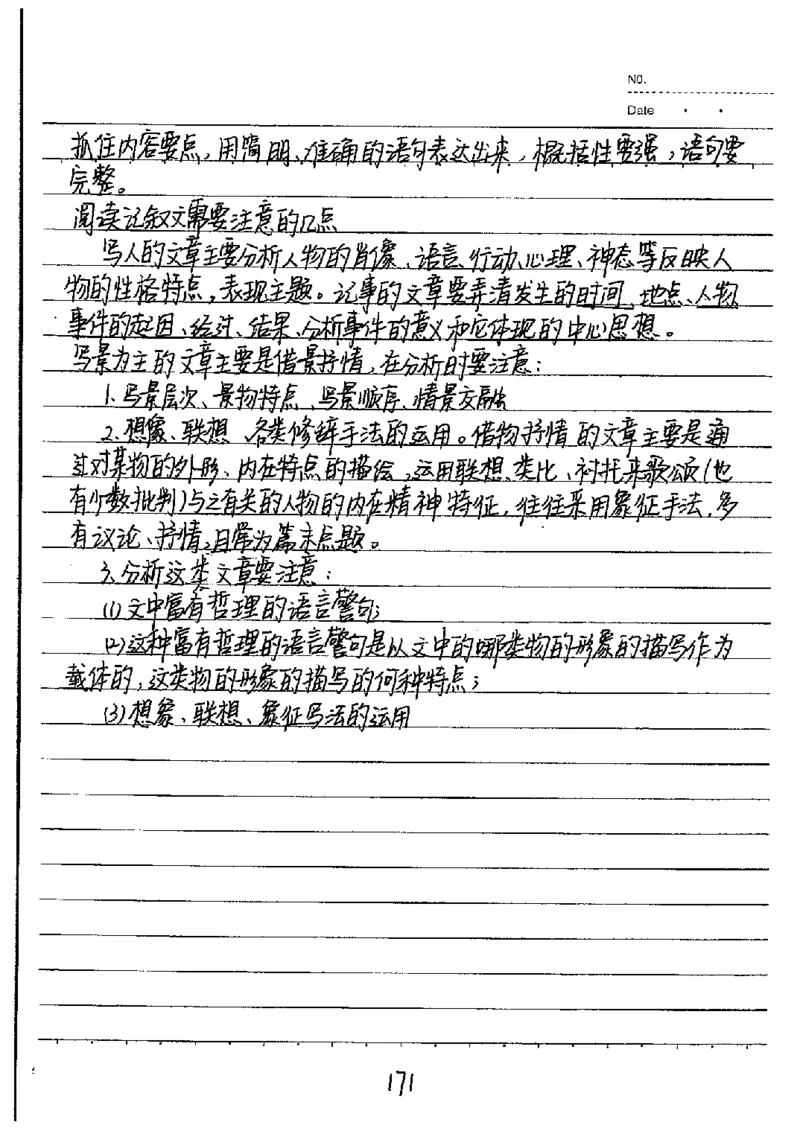 NO.
Date
抓住内容要点，用简明、准确的语句表达出来，概括性要强，语句要
完整。
阅读记叙文需要注意的几点
写人的文章主要分析人物的肖像、语言、行动、心理、神态等反映人
物的性格特点，表现主题。记事的文章要弄清发生的时间、地点、人物、
事件的起因、经过、结果、分析事件的意义和它体现的中心思想。
写景为主的文章主要是借景抒情，在分析时要注意：
1、写景层次、景物特点、写景顺序、情景交融
2、想像、联想、各类修辞手法的运用。借物抒情的文章主要是通
过对某物的外形、内在特点的描绘，运用联想、类比、衬托来歌颂（也
有少数批判）与之有关的人物的内在精神特征，往往采用象征手法，多
有议论、抒情，且常为篇末点题。
3、分析这类文章要注意：
(1)文中富有哲理的语言警句；
(2)这种富有哲理的语言警句是从文中的哪类物的形象的描写作为
载体的，这类物的形象的描写的何种特点；
(3)想象、联想、象征写法的运用
171